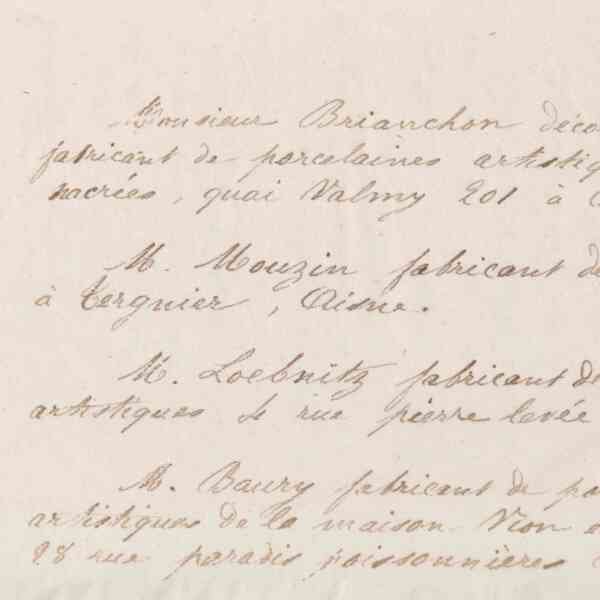 Monsieur Brianchon déco
fabricant de porcelaines artistiq
nacrées, quai Valmy 201 à
M. Mouzin fabricant de
à Tergnier, Aisne.
M. Loebnitz fabricant d
artistiques 4 rue pierre levée
M. Baury fabricant de po
artistiques de la maison Vion
98 rue paradis poissonnières